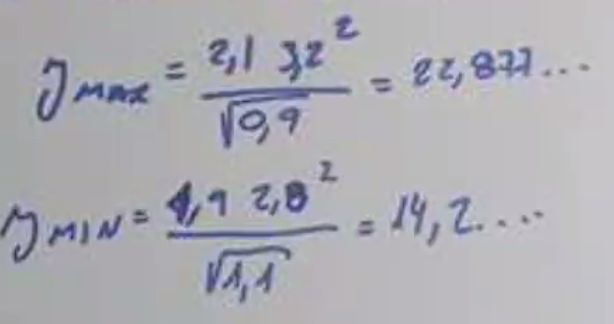 Jmax = 2,1 3,2² / √0,9 = 22,877...
JMIN = 1,9 2,8² / √1,1 = 14,2....